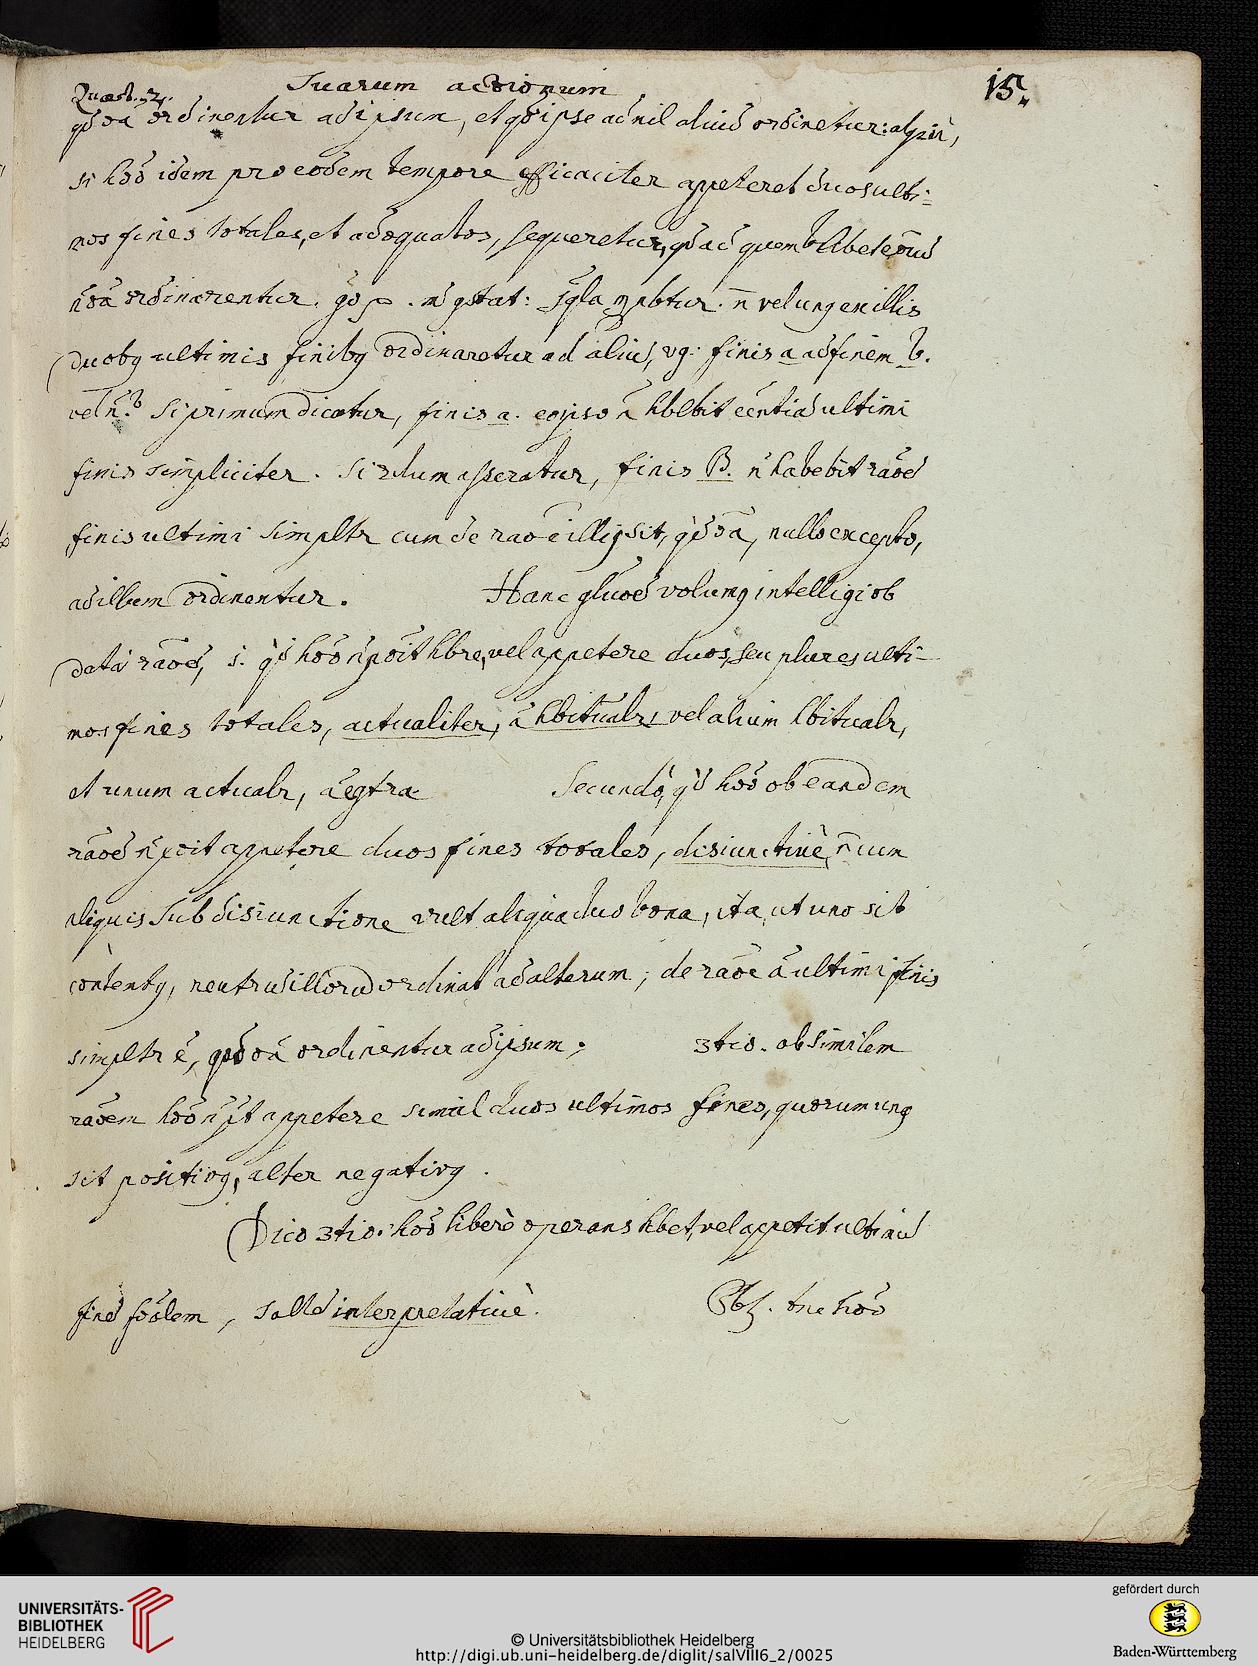 Quæst. 2.
Suarum actionum
15.
qd oã ordinentur ad ipsum, et qd ipse ad nil aliud ordinetur: atqui,
si hõo idem pro eodem tempore efficaciter appeteret duos ulti-
mos fines totales, et adæquatos, sequeretur, qd ad quemlibet eorũ
nõ oã ordinarentur. gõ p. m̃ gstat: sqla
n̄ vel ung ex illis
duobg ultimis finibg ordinaretur ad aliũ, vg: finis a ad finem b.
vel ñ? Si primum dicatur, finis a. eo ipso ñ hbbit eẽntiã ultimi
finis simpliciter. Si 2dum asseratur, finis B. ñ habebit raõẽ
finis ultimi simpltr cum de raõe illig sit, qd oã, nullo excepto,
ad illum ordinentur. Hanc gluõẽ volumg intelligi ob
datã raõẽ, 1. qd hõo ñ põit hbre, vel appetere duos, seu plures ulti-
mos fines totales, actualiter, ã hbitualr, vel alium hbitualr,
et unum actualr, ã egtra Secundò, qd hõo ob eandem
raõẽ ñ põit appetere duos fines totales, disiunctivè, ñ cum
aliquis sub disiunctione vult aliqua duo bona, ita, ut uno sit
contentg, neutrũ illorũ ordinat ad alterum; de raõe ã ultimi finis
simpltr ẽ, qd oã ordinentur ad ipsum; 3tio. ob similem
raõem hõo ñ pt appetere simul duos ultimos fines, quorum ung
sit positivg, alter negativg.
Dico 3tio. hõo liberè operans hbet, vel appetit ultimũ
finẽ fõalem, saltẽ interpretativè. Pbr. tnc hõo
UNIVERSITÄTS-
BIBLIOTHEK
HEIDELBERG
© Universitätsbibliothek Heidelberg
http://digi.ub.uni-heidelberg.de/diglit/salVIII6_2/0025
gefördert durch
Baden-Württemberg